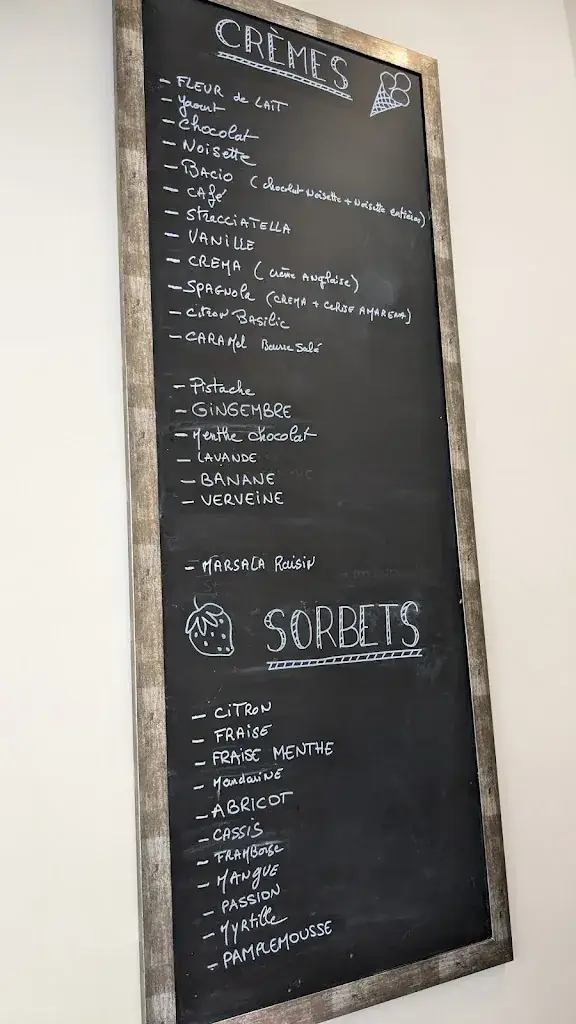 CRÈMES
- FLEUR de LAIT
- Yaourt
- Chocolat
- Noisette
- BACIO (chocolat Noisette + Noisette entières)
- CAFé
- STRACCIATELLA
- VANILLE
- CREMA (crème ANglaise)
- SPAGNOLA (CREMA + CERISE AMARENA)
- Citron Basilic
- CARAMel Beurre Salé
- Pistache
- GINGEMBRE
- Menthe chocolat
- LAVANDE
- BANANE
- VERVEINE
- MARSALA Raisin
SORBETS
- CiTRON
- FRAISE
- FRAISE MENTHE
- MandariNE
- ABRICOT
- CASSIS
- FRAMBoise
- MANGUE
- PASSION
- Myrtille
- PAMPLEMOUSSE